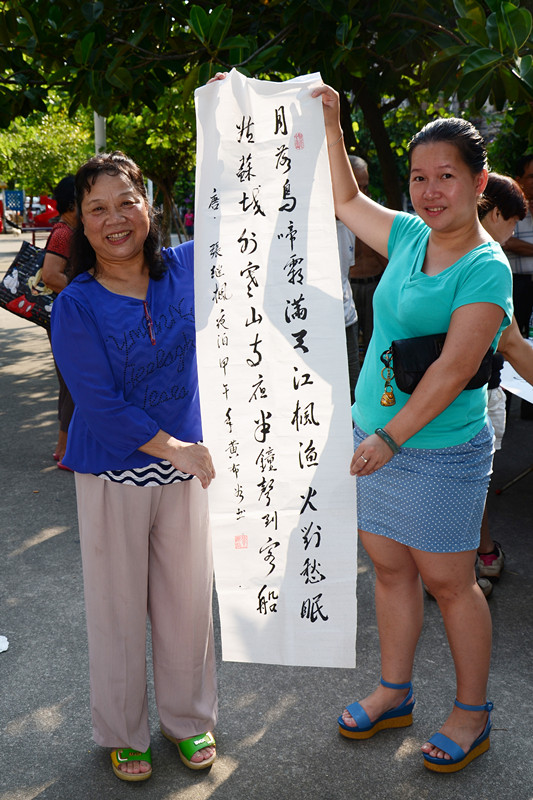 月落烏啼霜滿天江楓漁火對愁眠
姑蘇城外寒山寺夜半鐘聲到客船
唐 張继楓夜泊甲午年黄